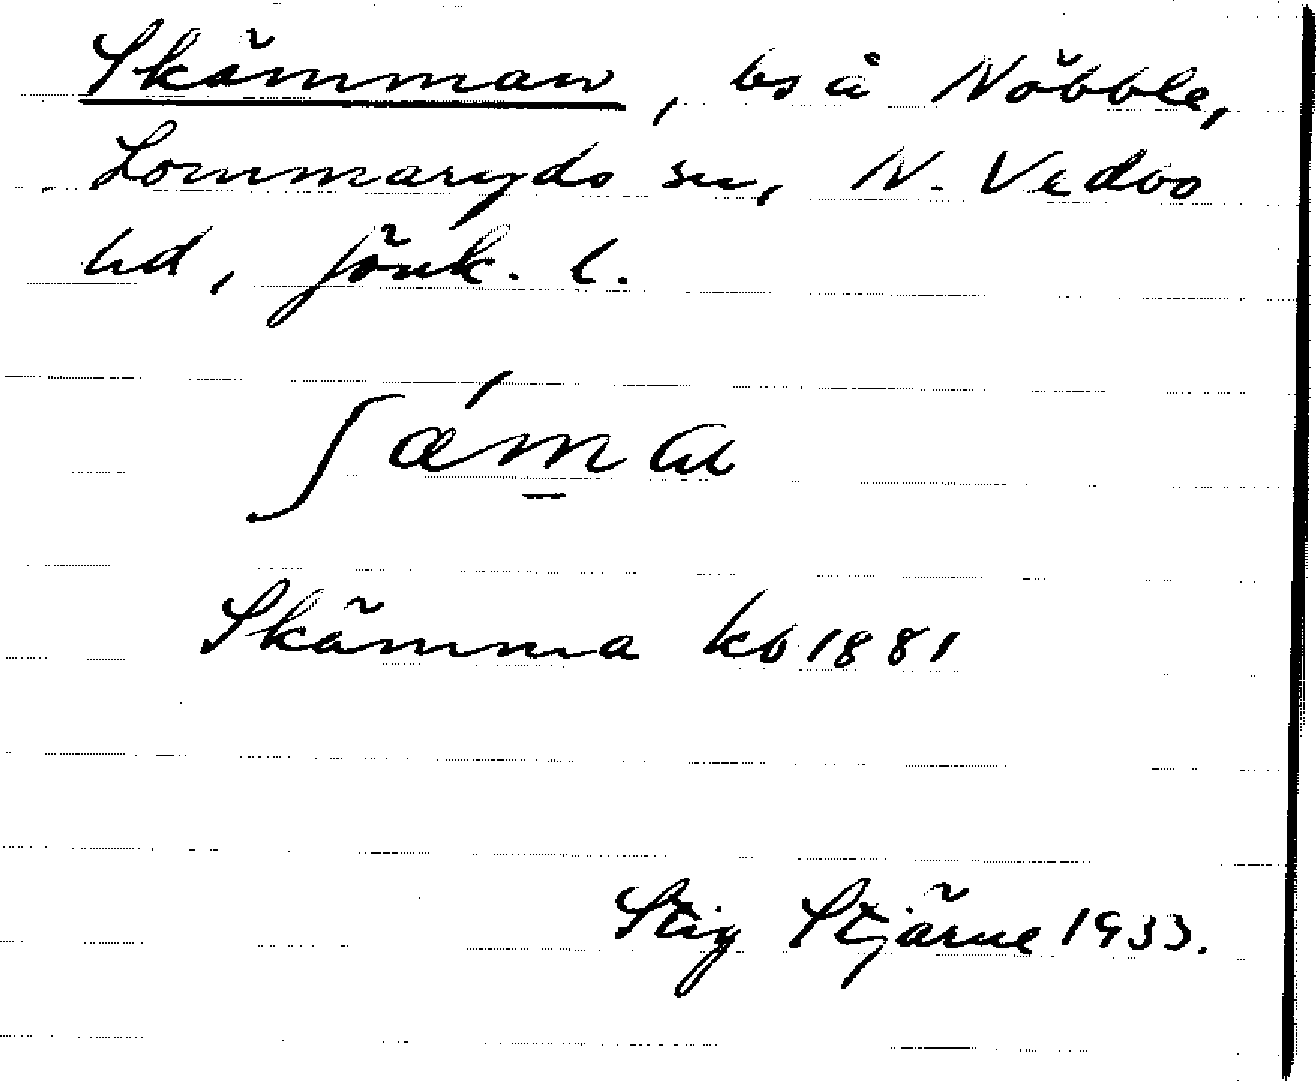 Skämman, bs å Nöbble,
Lommaryds sn, N. Vedbo
hd, Jönk. l.
Skämma kb 1881
Stig Stjärne 1933.